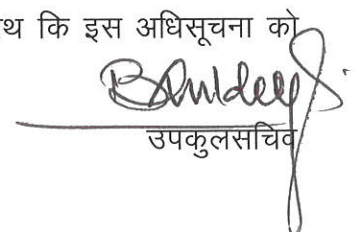 थ कि इस अधिसूचना को
उपकुलसचिव